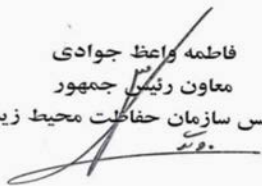 فاطمه واعظ جوادی
معاون رئیس جمهور
س سازمان حفاظت محیط زی